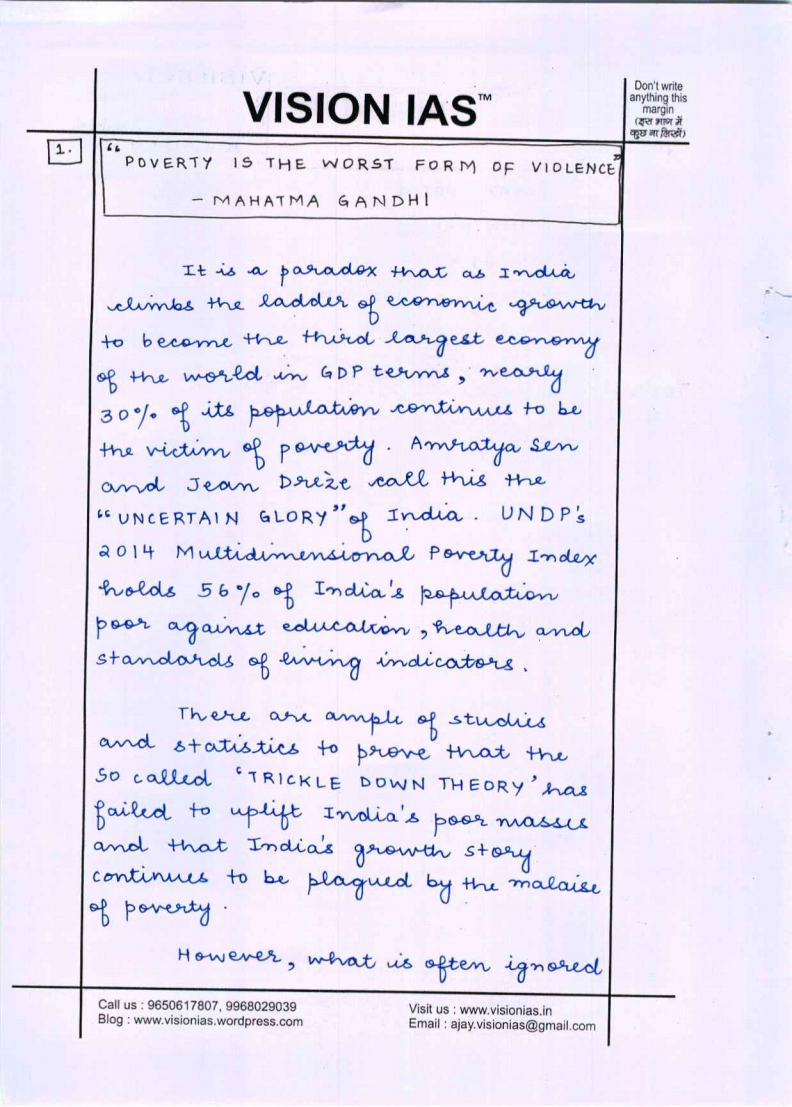 VISION IAS™
Don't write
anything this
margin
(इस भाग में
कुछ ना लिखें)
1.
"POVERTY IS THE WORST FORM OF VIOLENCE"
- MAHATMA GANDHI
It is a paradox that as India
climbs the ladder of economic growth
to become the third largest economy
of the world in GDP terms, nearly
30% of its population continues to be
the victim of poverty. Amratya Sen
and Jean Drèze call this the
"UNCERTAIN GLORY" of India. UNDP's
2014 Multidimensional Poverty Index
holds 56% of India's population
poor against education, health and
standards of living indicators.
There are ample of studies
and statistics to prove that the
so called 'TRICKLE DOWN THEORY' has
failed to uplift India's poor masses
and that India's growth story
continues to be plagued by the malaise
of poverty.
However, what is often ignored
Call us : 9650617807, 9968029039
Blog : www.visionias.wordpress.com
Visit us : www.visionias.in
Email : ajay.visionias@gmail.com